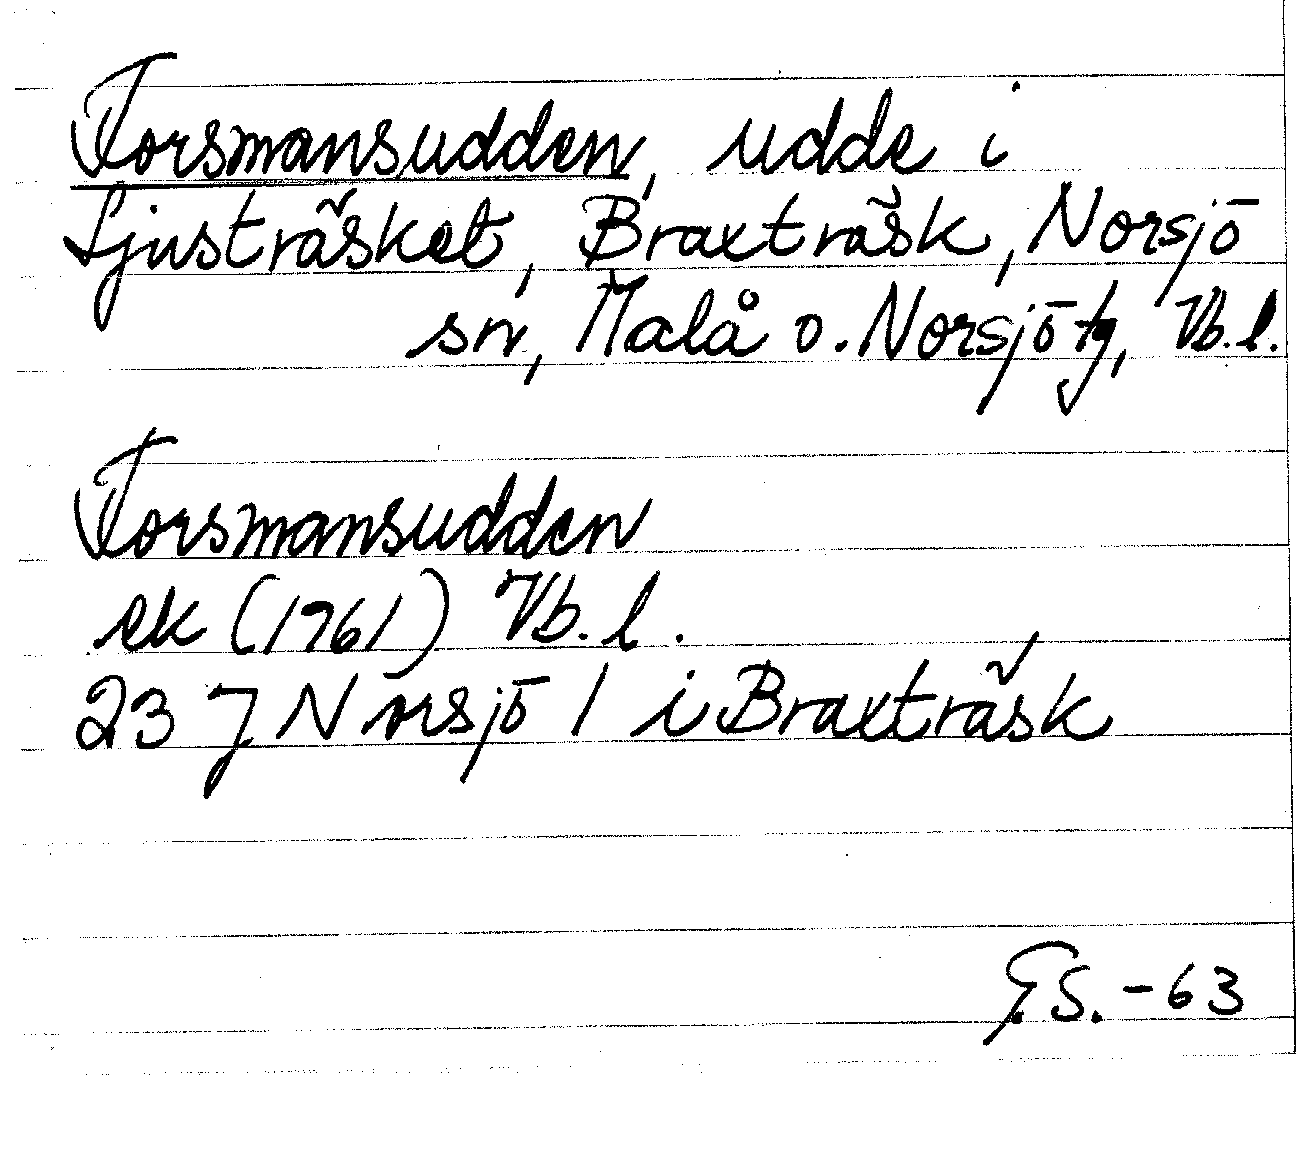 Forsmansudden, udde i
Ljusträsket, Braxträsk, Norsjö
sn, Malå o. Norsjö tg, Vb. l.
Forsmansudden
ek (1961) Vb. l.
23 J Norsjö 1 i Braxträsk
G.S. - 63